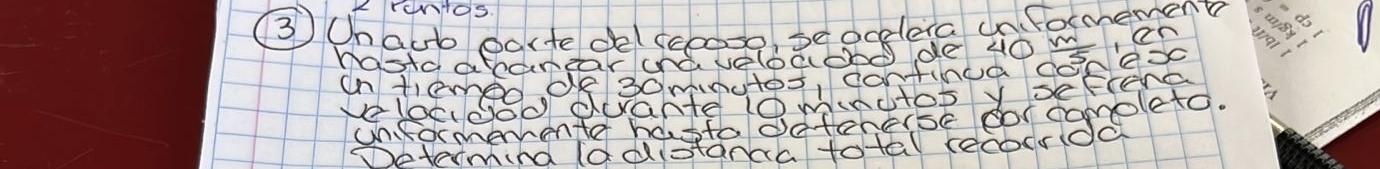 2 Puntos.
③ Un auto parte del reposo, se acelera uniformemente
hasta alcanzar una velocidad de 40 m/s, en
un tiempo de 30 minutos, continua con esc
velocidad durante 10 minutos y se frena
uniformemente hasta detenerse por completo.
Determina la distancia total recorrida